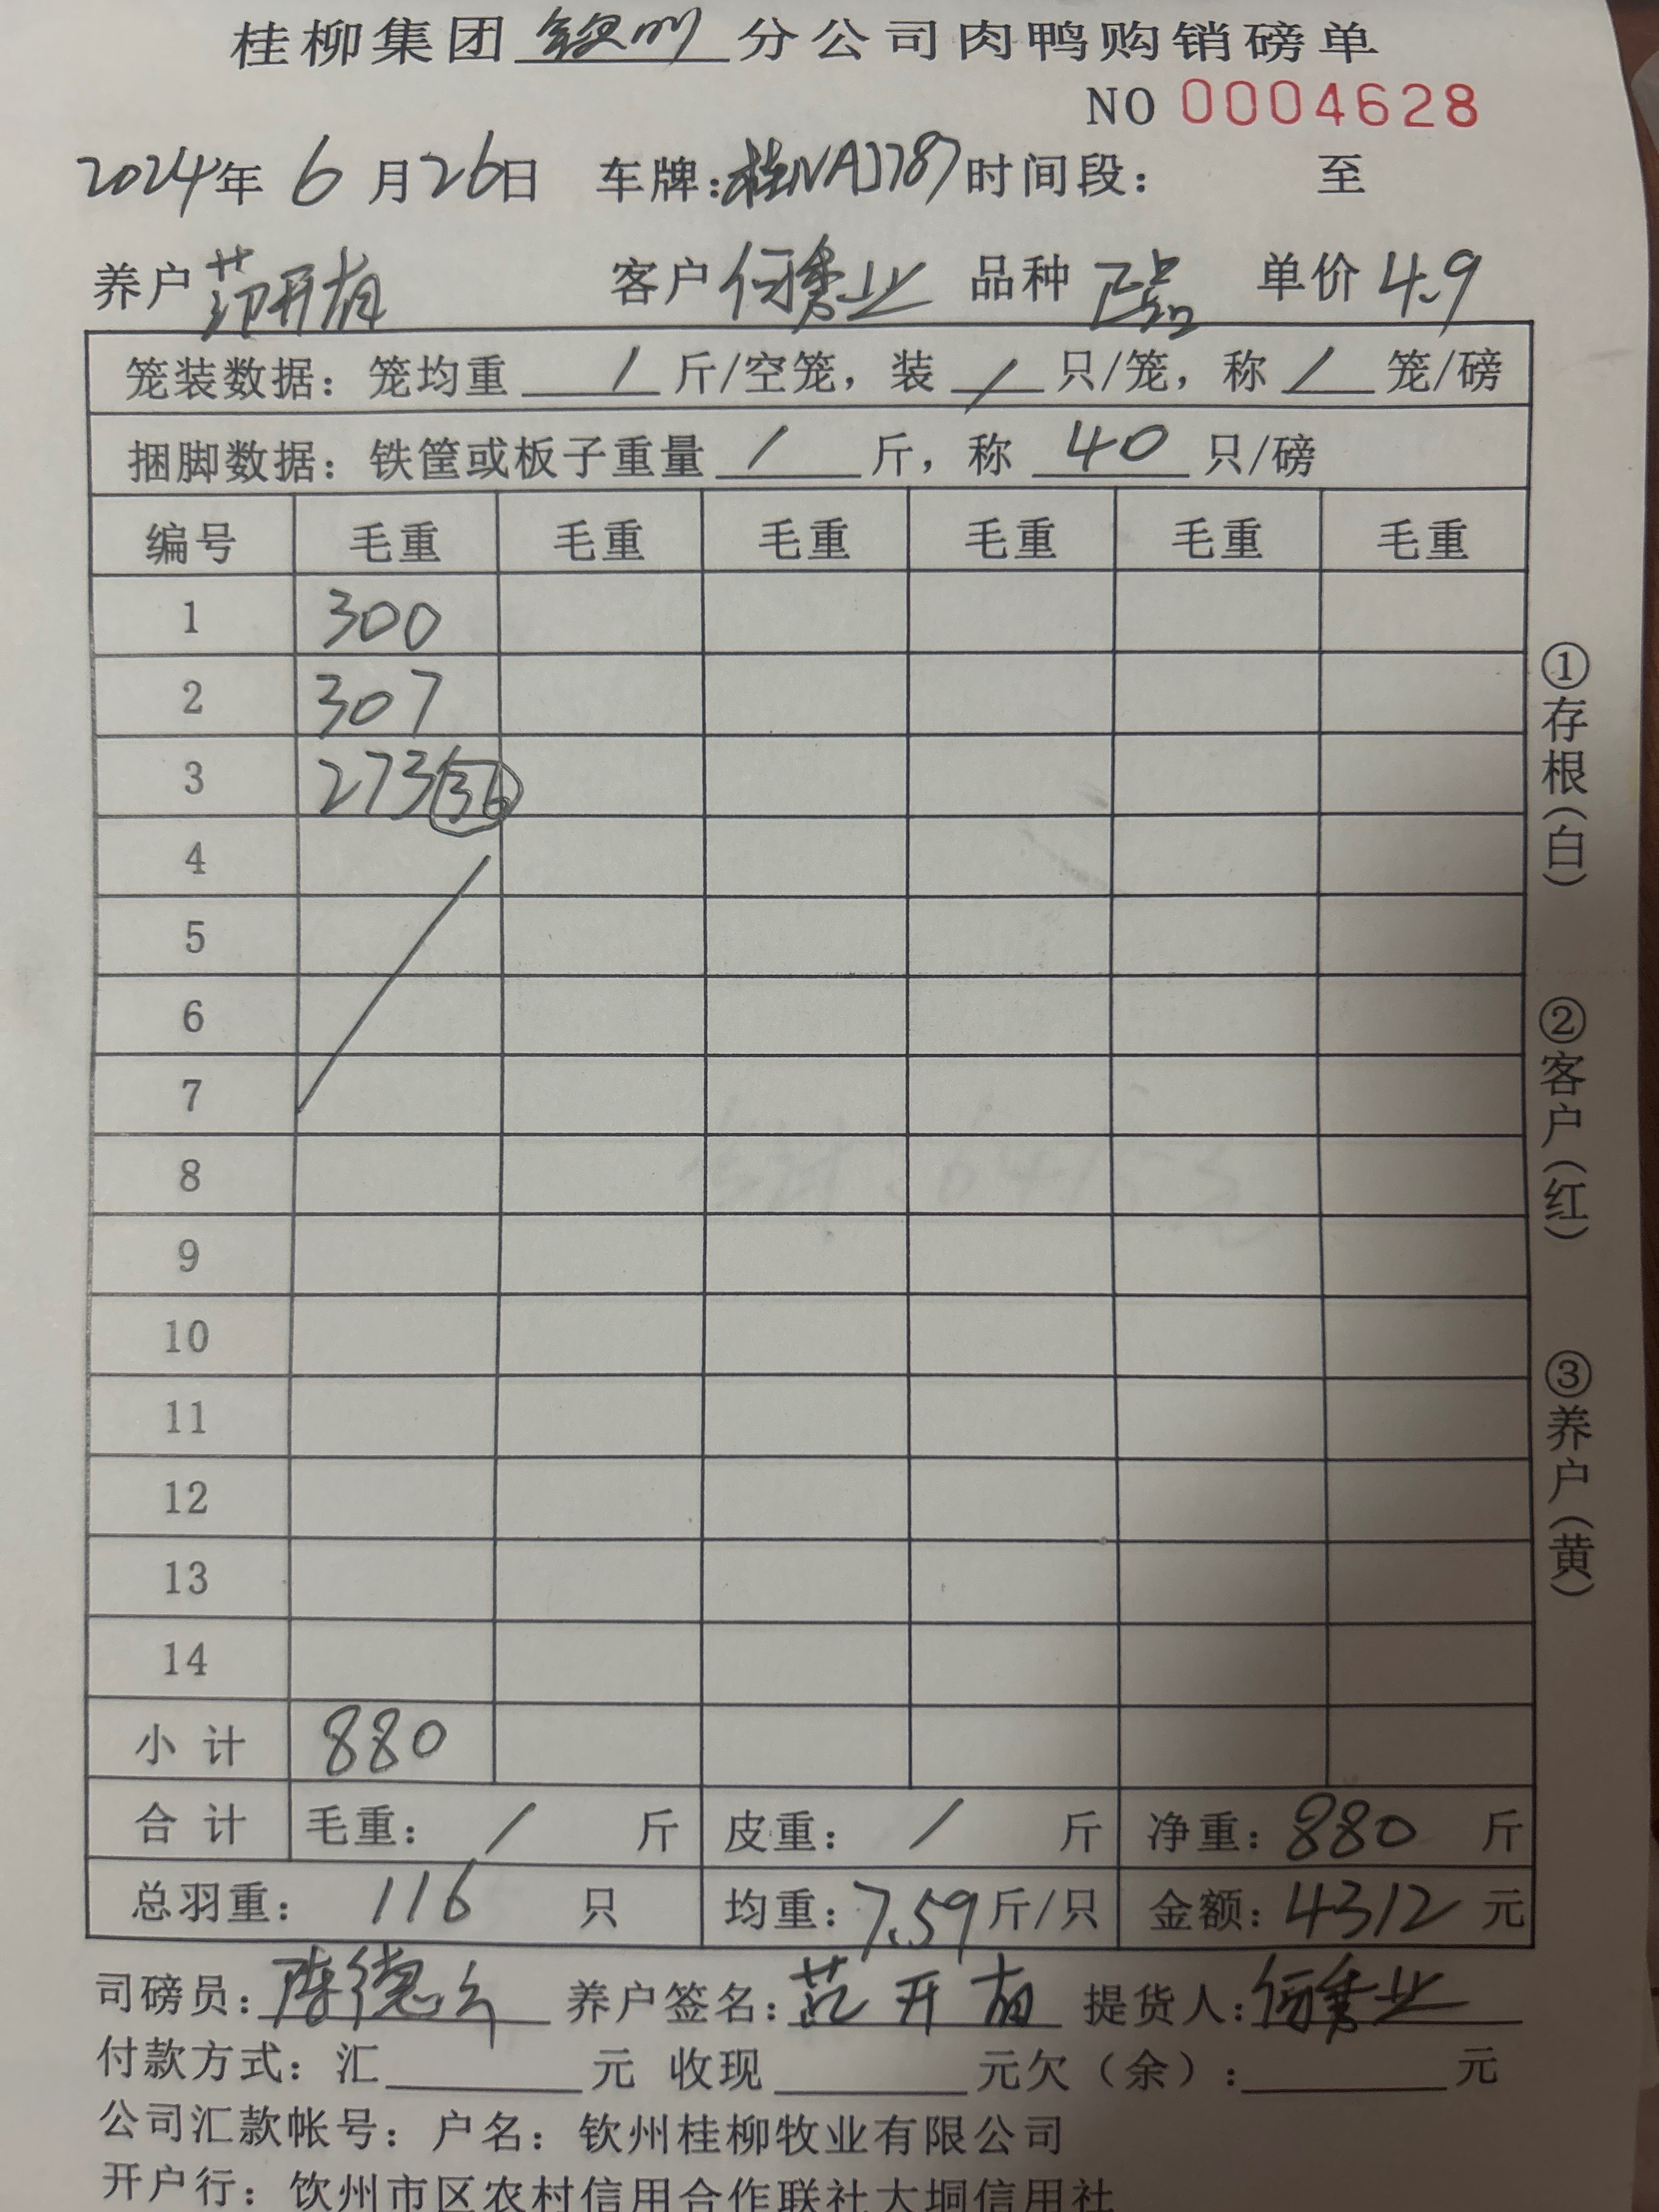 桂柳集团 钦州 分公司肉鸭购销磅单
NO 0004628
2024年 6 月26日 车牌:桂NA3787 时间段: 至
养户 范开有 客户 何秀业 品种 正品 单价 4.9
笼装数据: 笼均重 / 斤/空笼, 装 / 只/笼, 称 / 笼/磅
捆脚数据: 铁筐或板子重量 / 斤, 称 40 只/磅
编号 毛重 毛重 毛重 毛重 毛重 毛重
1 300
2 307
3 273 36
4
5
6
7
8
9
10
11
12
13
14
小计 880
合计 毛重: / 斤 皮重: / 斤 净重: 880 斤
总羽重: 116 只 均重: 7.59 斤/只 金额: 4312 元
司磅员: 陈德 养户签名: 范开有 提货人: 何秀业
付款方式: 汇 元 收现 元欠(余): 元
公司汇款帐号: 户名: 钦州桂柳牧业有限公司
开户行: 钦州市区农村信用合作联社大垌信用社
①存根(白)
②客户(红)
③养户(黄)